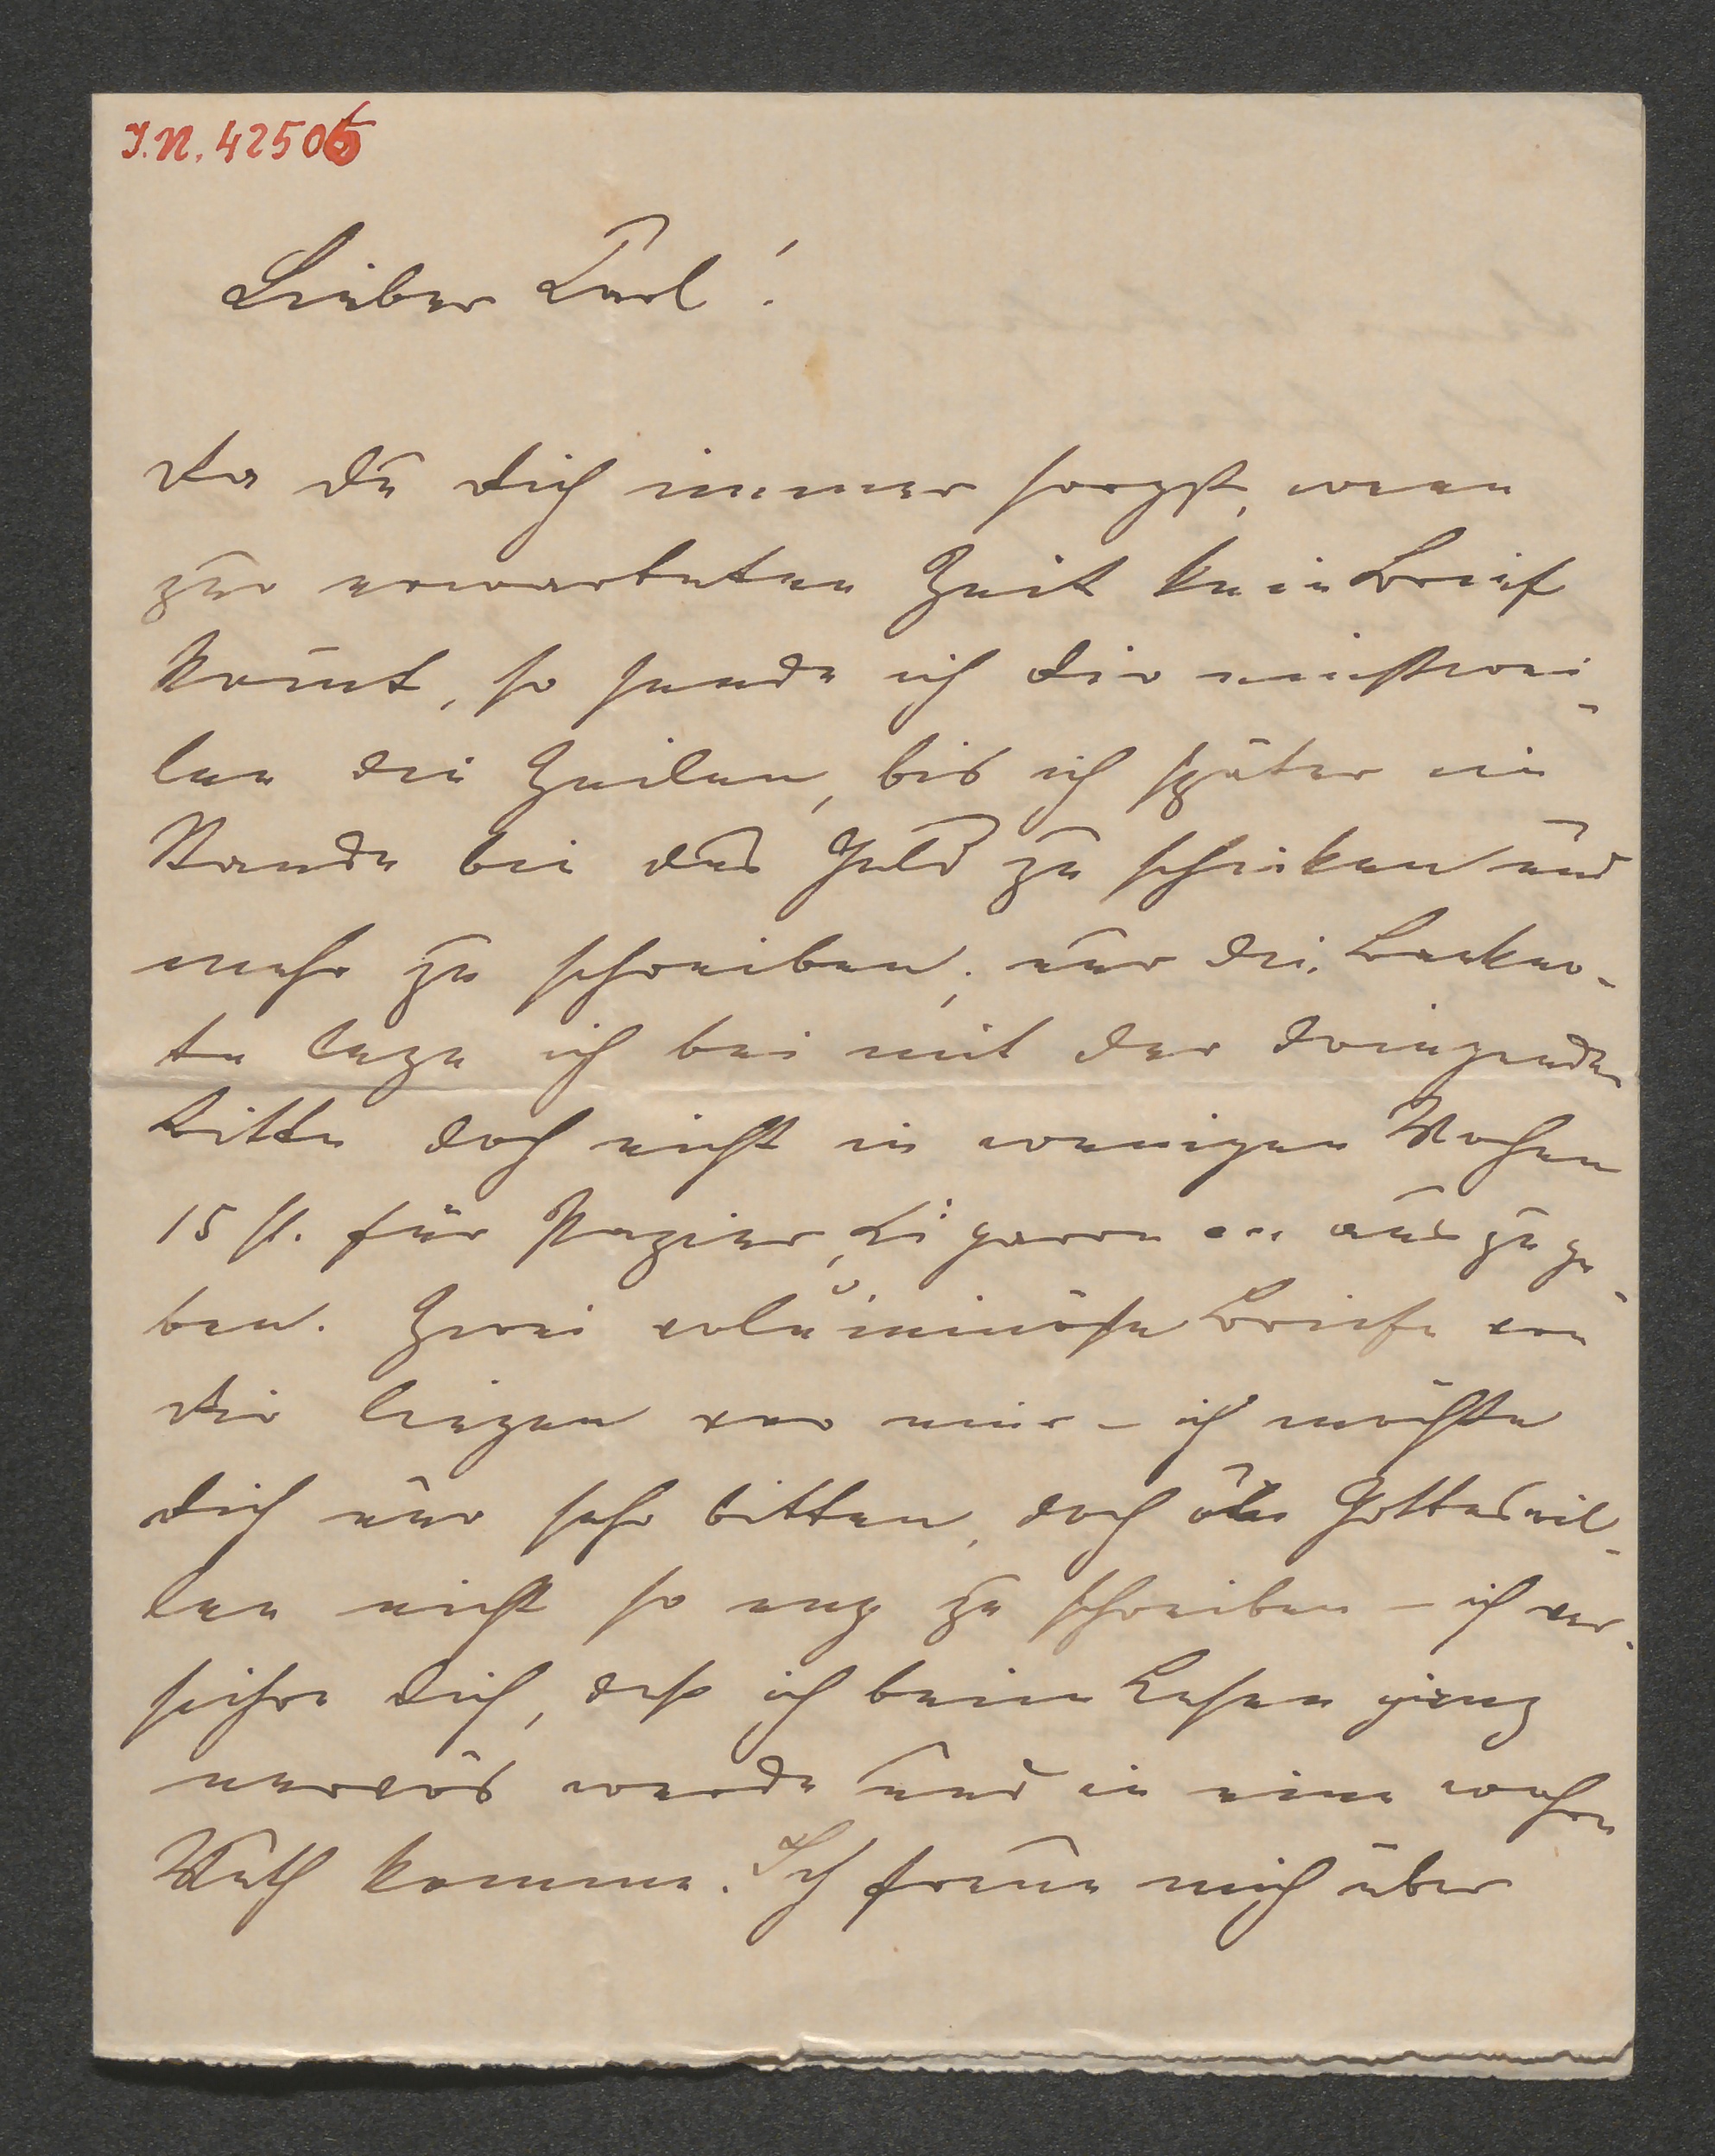 I.N. 42506
Lieber Karl!
Da Du Dich immer sorgst, wenn
zur erwarteten Zeit kein Brief
kom̄t, so sende ich Dir einstwei-
len die Zeilen, bis ich später im
Stande bin das Geld zu schicken und
mehr zu schreiben; nur die Bankno-
te lege ich bei mit der dringenden
Bitte doch nicht in wenigen Wochen
15 fl. für Papier, Cigarren ... auszuge-
ben. Zwei voluminöse Briefe von
Dir liegen vor mir – ich möchte
Dich nur sehr bitten, doch um Gotteswil-
len nicht so eng zu schreiben – ich ver-
sichre Dich, daß ich beim Lesen ganz
nervös werde und in eine wahre
Wuth komme. Ich freue mich über